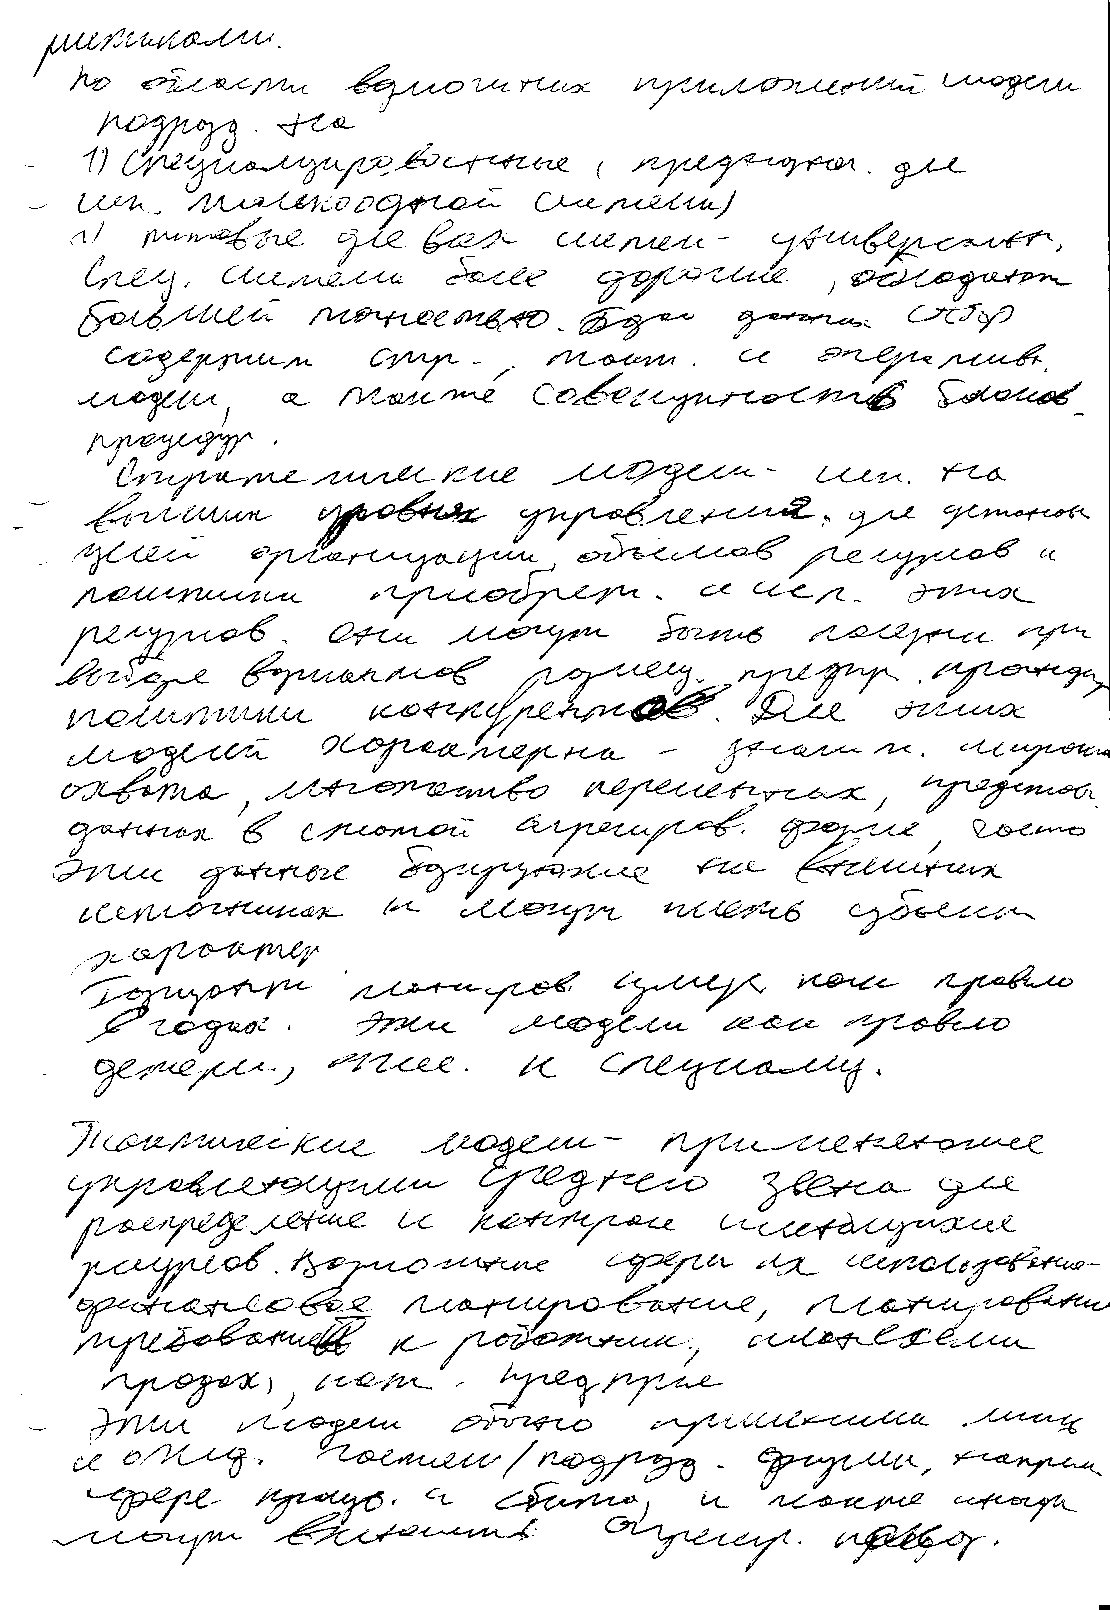 по области возможных приложений модели
подразд. на
1) Специализированные, предназнач. для
исп. только одной системы)
2) типовые для всех систем - универсальн.
Спец. системы более дорогие, обладают
большей точностью. База данных
содержит стр., такт. и оператив.
модели, а также совокупность блоков
процедур.
Стратегические модели - исп. на
высших уровнях управления, для установ
целей организации, объемов ресурсов и
политики приобрет. и исп. этих
ресурсов. Они могут быть полезны при
выборе вариантов размещ. предпр. прогнозир
политики конкурентов. Для этих
моделей характерна - значит. широта
охвата, множество переменных, представ
данных в сжатой агрегиров. форме, часто
эти данные базирующие на внешних
источниках и могут иметь субъект
характер
Горизонт планиров. измер. как правило
в годах. Эти модели как правило
детерм., спец.
Тактические модели - применяющие
управляющими среднего звена для
распределение и контроль имеющихся
ресурсов. Возможные сферы их использования -
финансовое планирование, планирование
требований к работник.,
продаж,
Эти модели обычно применимы лишь
к отд. частям / подразд. фирмы, наприм
сфере произв. и сбыта, и также иногда
могут включать агрегир.